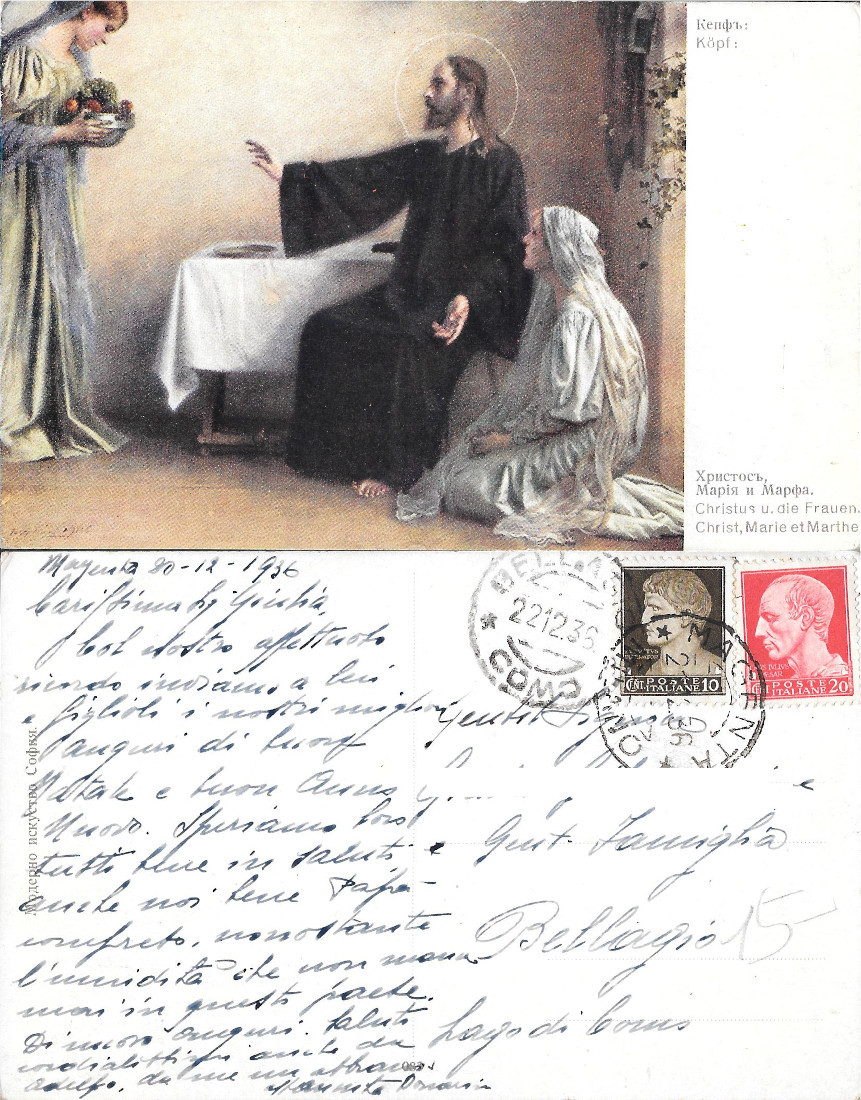 Кепфъ:
Köpf:
Христосъ,
Марія и Марфа.
Christus u. die Frauen.
Christ, Marie et Marthe
Magenta 20-12-1936
Carissima Giulia,
Col nostro affettuoso
ricordo inviamo a lei
e figlioli i nostri migliori
auguri di buon
Natale e buon Anno
Nuovo. Speriamo loro
tutti bene in salute, e
anche noi bene Papà
compreso, nonostante
l'umidità che non manca
mai in questo paese.
Di nuovo auguri, saluti
cordialissimi anche da
Adolfo, da me un abbraccio
Модерно искуство София.
BELLAGIO
22.12.36
* COMO
POSTE
ITALIANE 10
IVLIVS
POSTE
ITALIANE 20
MAGENTA
Gent. Signora
e
Gent. Famiglia
Bellagio
15
Lago di Como